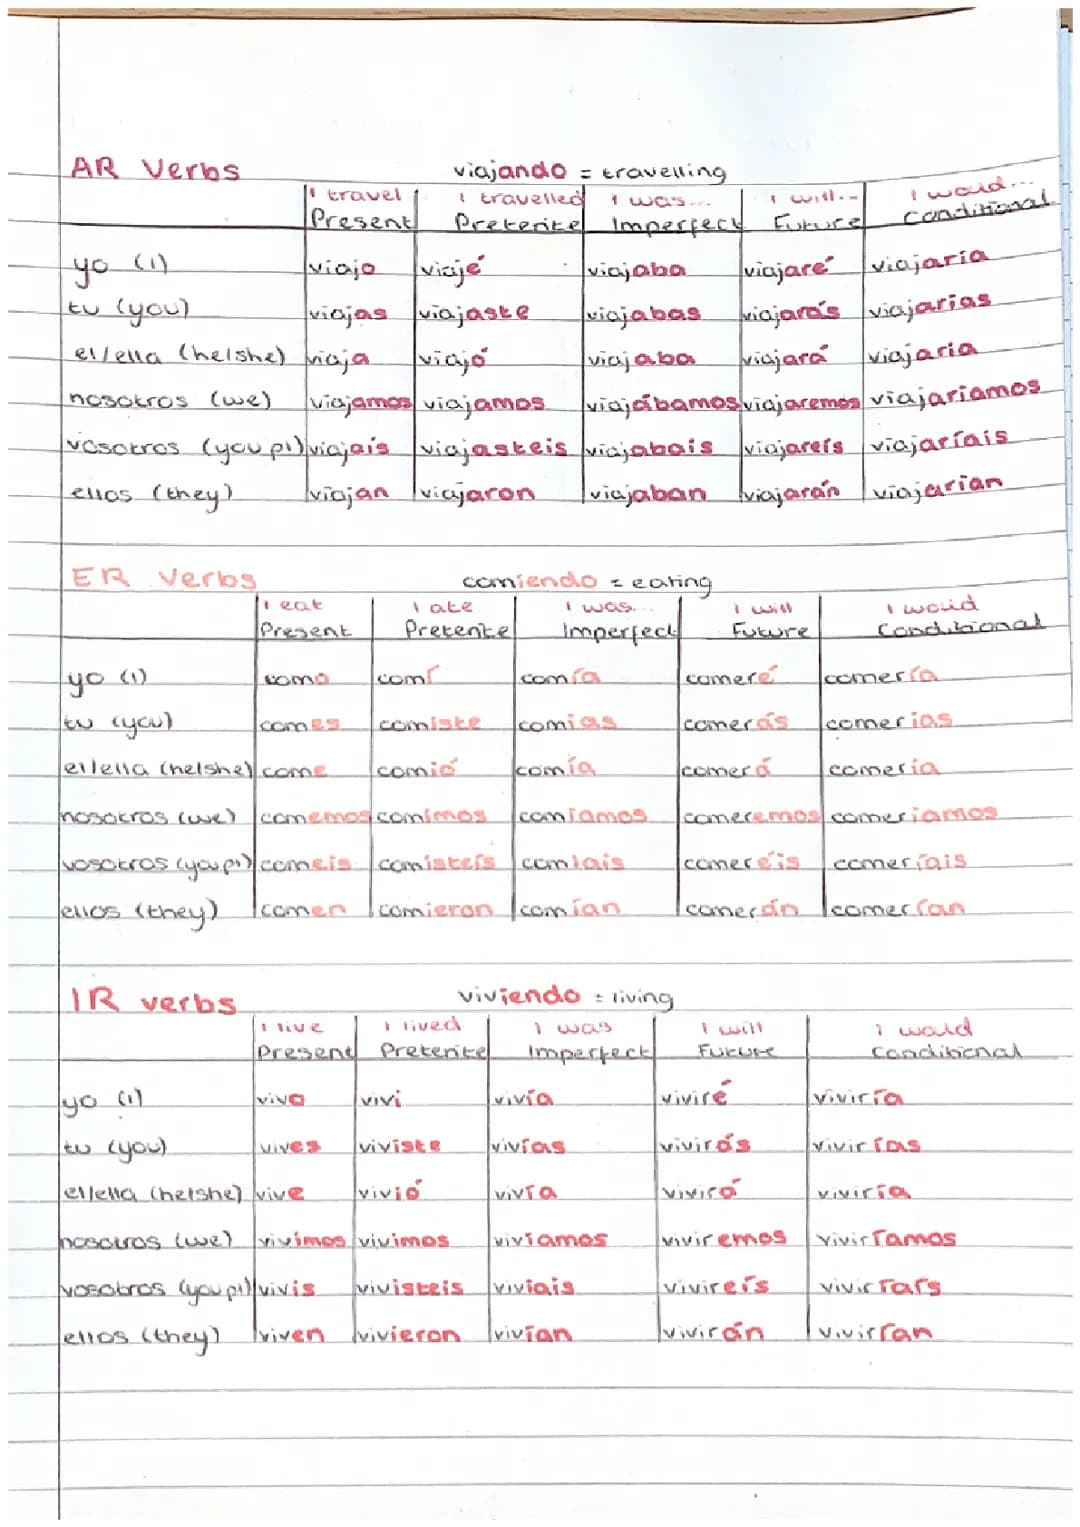 AR Verbs viajando = travelling
I travel I travelled I was... I will... I would...
Present Preterite Imperfect Future Conditional
yo (I) viajo viajé viajaba viajaré viajaría
tu (you) viajas viajaste viajabas viajarás viajarías
el/ella (he/she) viaja viajó viajaba viajará viajaria
nosotros (we) viajamos viajamos viajábamos viajaremos viajariamos
vosotros (you pl) viajaís viajasteis viajabais viajareís viajaríais
ellos (they) viajan viajaron viajaban viajarán viajarian
ER Verbs comiendo = eating
I eat I ate I was... I will I would
Present Preterite Imperfect Future Conditional
yo (I) como comí comía comeré comería
tu (you) comes comiste comias comerás comerias
el/ella (he/she) come comió comía comerá comeria
nosotros (we) comemos comimos comíamos comeremos comeriamos
vosotros (you pl) comeis comisteis comiais comereís comeríais
ellos (they) comen comieron comían comerán comerían
IR verbs viviendo = living
I live I lived I was I will I would
Present Preterite Imperfect Future Conditional
yo (I) vivo vivi vivía viviré viviría
tu (you) vives viviste vivías vivirás vivirías
el/ella (he/she) vive vivió vivía vivirá viviría
nosotros (we) vivimos vivimos vivíamos viviremos viviríamos
vosotros (you pl) vivis vivisteis viviais vivireís viviríais
ellos (they) viven vivieron vivían vivirán vivirían